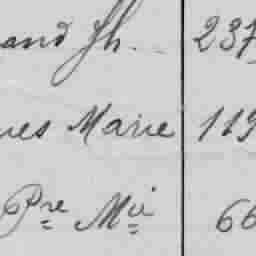 and Jh. 237
ues Marie 119
Pre Mii 66